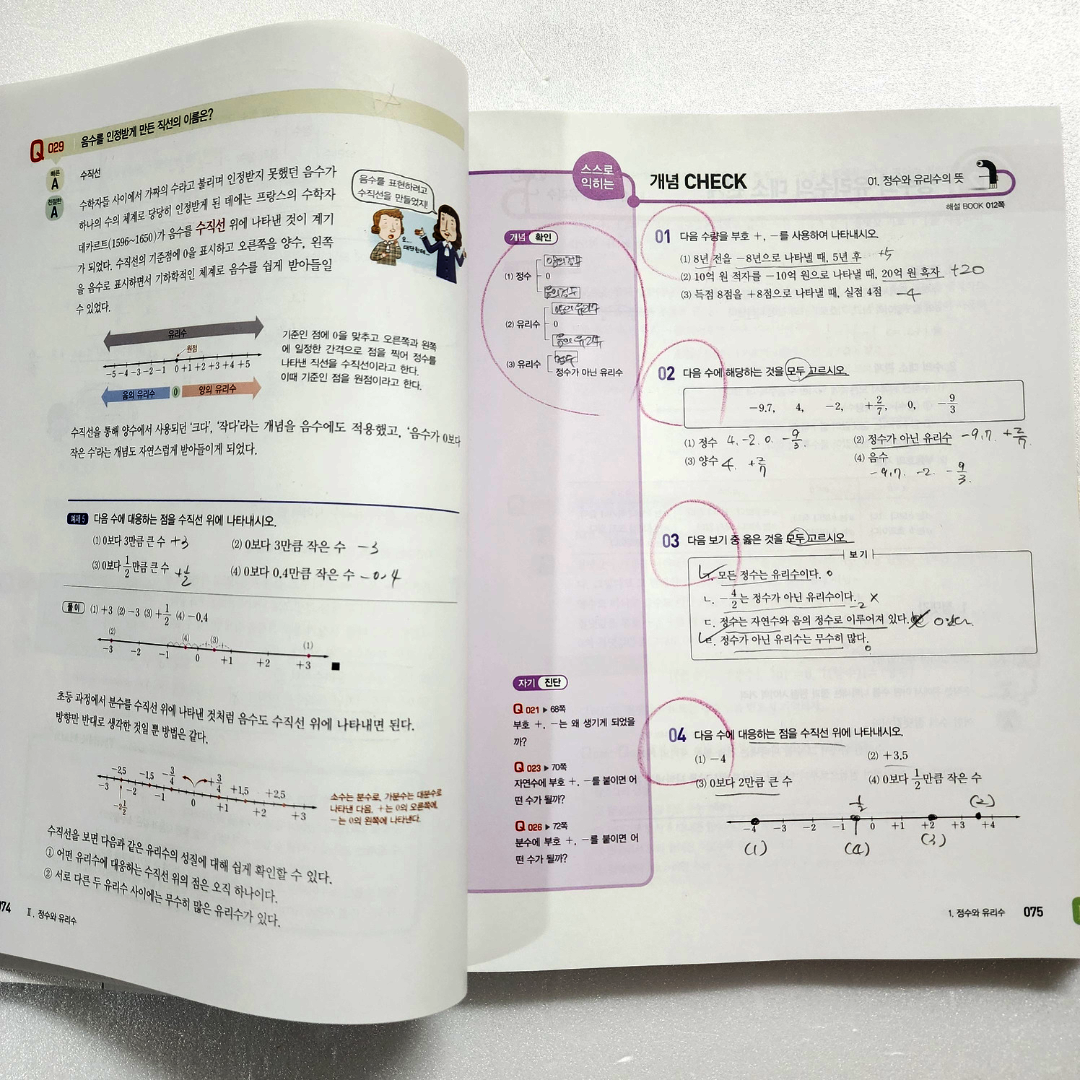 Q 029 음수를 인정받게 만든 직선의 이름은?
빠른 A 수직선
친절한 A 수학자들 사이에서 가짜의 수라고 불리며 인정받지 못했던 음수가
하나의 수의 체계로 당당히 인정받게 된 데에는 프랑스의 수학자
데카르트(1596~1650)가 음수를 수직선 위에 나타낸 것이 계기
가 되었다. 수직선의 기준점에 0을 표시하고 오른쪽을 양수, 왼쪽
을 음수로 표시하면서 기하학적인 체계로 음수를 쉽게 받아들일
수 있었다.
음수를 표현하려고
수직선을 만들었지!
오...
대단한데...
유리수
원점
-5 -4 -3 -2 -1 0 +1 +2 +3 +4 +5
음의 유리수 0 양의 유리수
기준인 점에 0을 맞추고 오른쪽과 왼쪽
에 일정한 간격으로 점을 찍어 정수를
나타낸 직선을 수직선이라고 한다.
이때 기준인 점을 원점이라고 한다.
수직선을 통해 양수에서 사용되던 '크다', '작다'라는 개념을 음수에도 적용했고, '음수가 0보다
작은 수'라는 개념도 자연스럽게 받아들이게 되었다.
예제 5 다음 수에 대응하는 점을 수직선 위에 나타내시오.
(1) 0보다 3만큼 큰 수 +3 (2) 0보다 3만큼 작은 수 -3
(3) 0보다 1/2만큼 큰 수 +1/2 (4) 0보다 0.4만큼 작은 수 -0.4
풀이 (1) +3 (2) -3 (3) +1/2 (4) -0.4
(2) (4) (3) (1)
-3 -2 -1 0 +1 +2 +3
초등 과정에서 분수를 수직선 위에 나타낸 것처럼 음수도 수직선 위에 나타내면 된다.
방향만 반대로 생각한 것일 뿐 방법은 같다.
-2.5 -1.5 -3/4 +3/4 +1.5 +2.5
-3 -2 -1 0 +1 +2 +3
-2 1/2
소수는 분수로, 가분수는 대분수로
나타낸 다음, +는 0의 오른쪽에,
-는 0의 왼쪽에 나타낸다.
수직선을 보면 다음과 같은 유리수의 성질에 대해 쉽게 확인할 수 있다.
① 어떤 유리수에 대응하는 수직선 위의 점은 오직 하나이다.
② 서로 다른 두 유리수 사이에는 무수히 많은 유리수가 있다.
074 Ⅱ. 정수와 유리수
스스로
익히는
개념 CHECK
01. 정수와 유리수의 뜻
해설 BOOK 012쪽
개념 확인
양의 정수
(1) 정수 0
음의 정수
양의 유리수
(2) 유리수 0
음의 유리수
정수
(3) 유리수 정수가 아닌 유리수
자기 진단
Q 021 ▶ 68쪽
부호 +, -는 왜 생기게 되었을
까?
Q 023 ▶ 70쪽
자연수에 부호 +, -를 붙이면 어
떤 수가 될까?
Q 026 ▶ 72쪽
분수에 부호 +, -를 붙이면 어
떤 수가 될까?
01 다음 수량을 부호 +, -를 사용하여 나타내시오.
(1) 8년 전을 -8년으로 나타낼 때, 5년 후 +5
(2) 10억 원 적자를 -10억 원으로 나타낼 때, 20억 원 흑자 +20
(3) 득점 8점을 +8점으로 나타낼 때, 실점 4점 -4
02 다음 수에 해당하는 것을 모두 고르시오.
-9.7, 4, -2, +2/7, 0, -9/3
(1) 정수 4. -2. 0. -9/3. (2) 정수가 아닌 유리수 -9.7. +2/7.
(3) 양수 4. +2/7 (4) 음수
-9.7. -2. -9/3.
03 다음 보기 중 옳은 것을 모두 고르시오.
보기
ㄱ. 모든 정수는 유리수이다. o
ㄴ. -4/2는 정수가 아닌 유리수이다. -2 x
ㄷ. 정수는 자연수와 음의 정수로 이루어져 있다.
ㄹ. 정수가 아닌 유리수는 무수히 많다. o
04 다음 수에 대응하는 점을 수직선 위에 나타내시오.
(1) -4 (2) +3.5
(3) 0보다 2만큼 큰 수 (4) 0보다 1/2만큼 작은 수
-1/2 (2)
-4 -3 -2 -1 0 +1 +2 +3 +4
(1) (4) (3)
1. 정수와 유리수 075